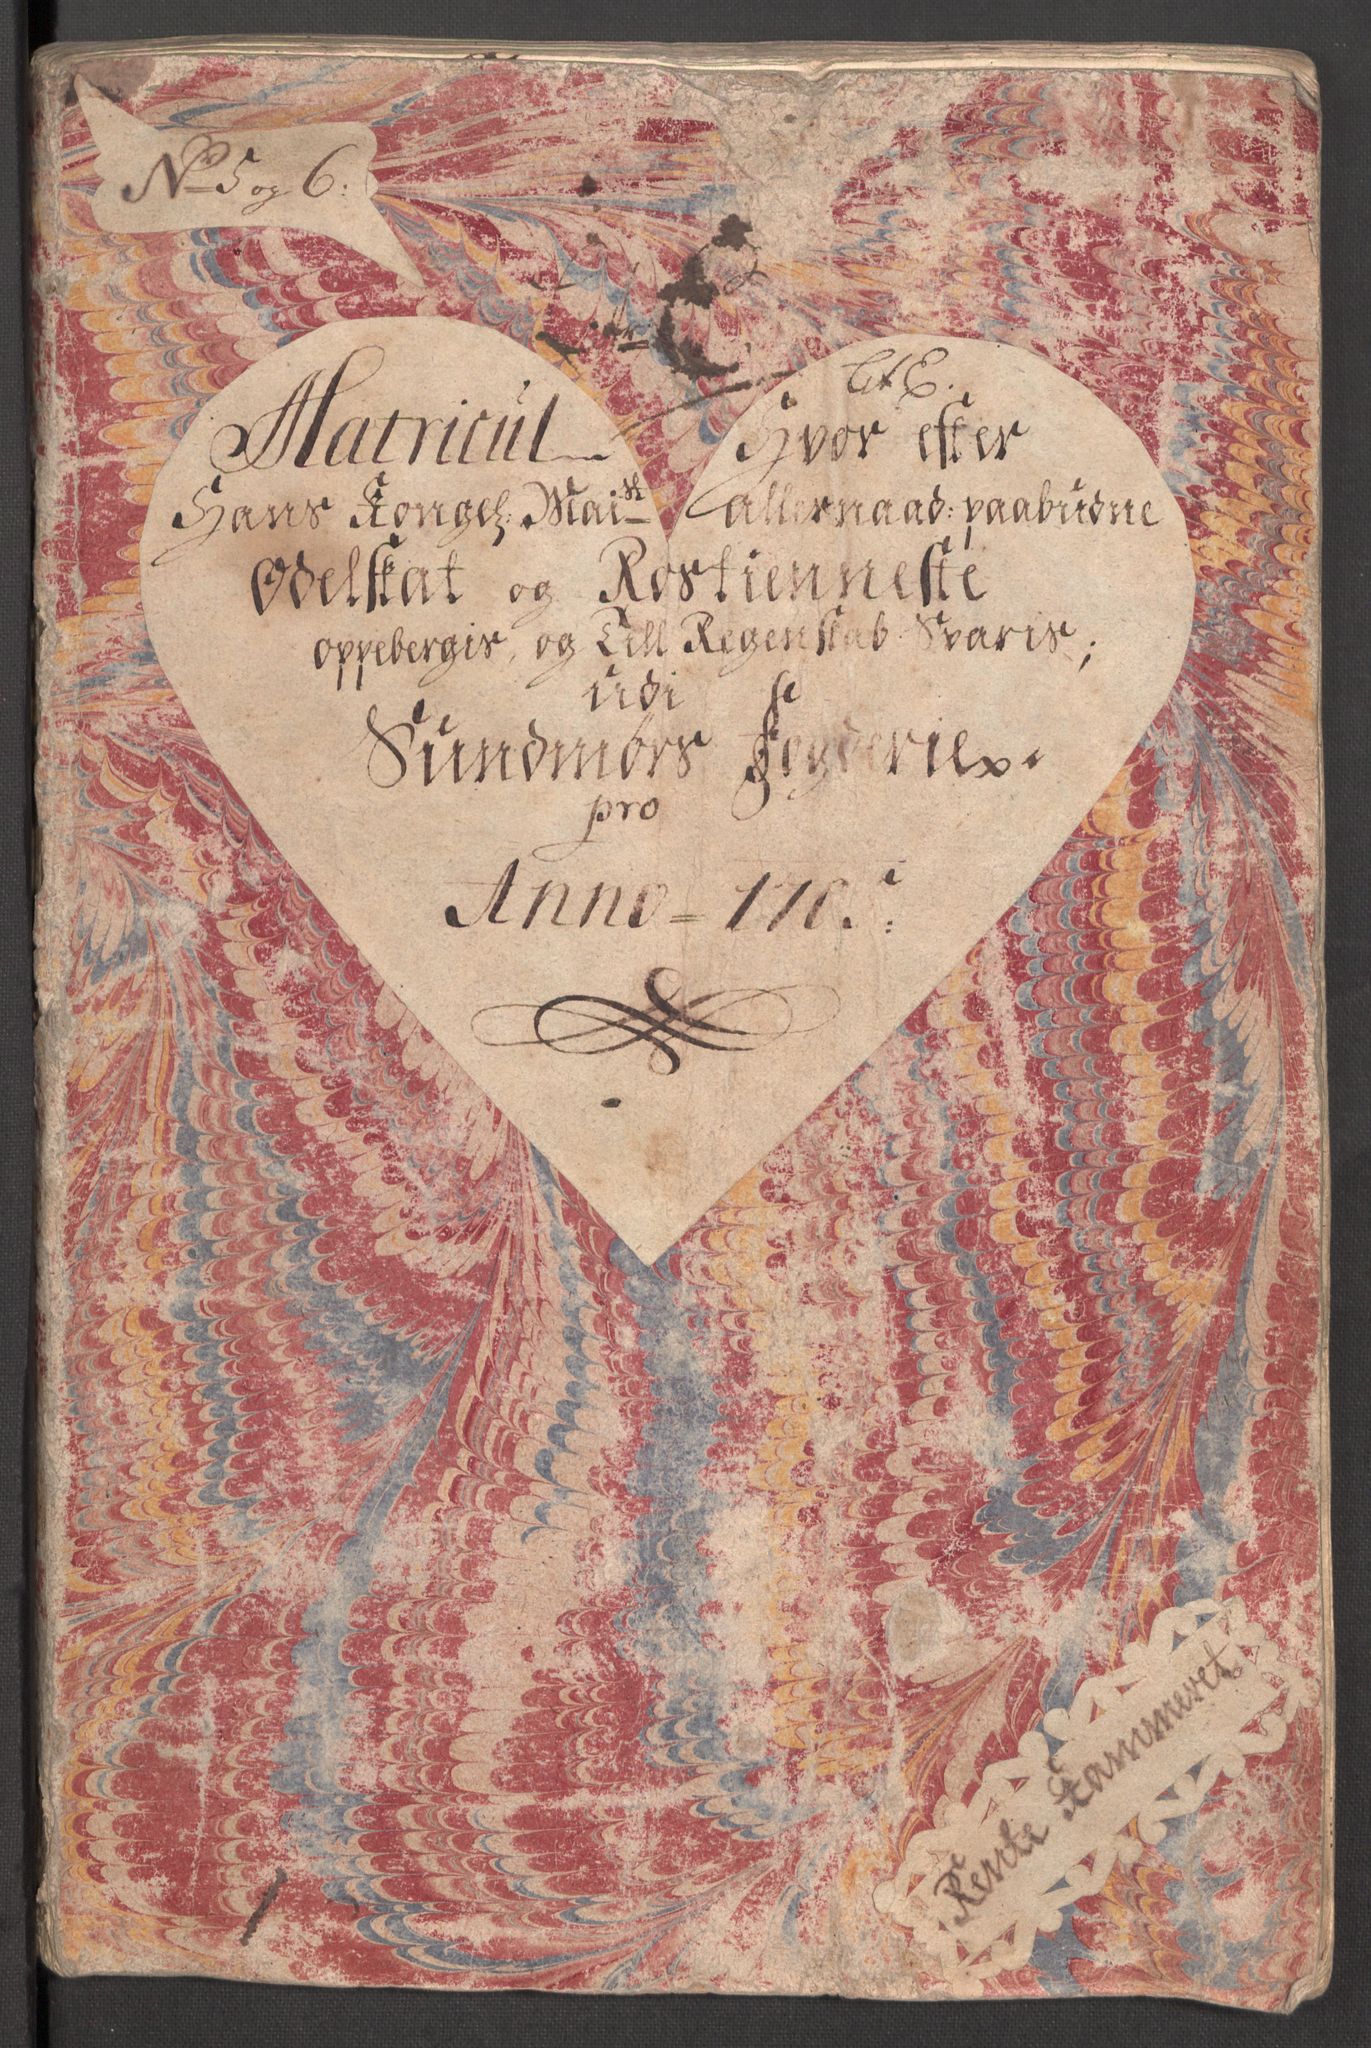 No 5 og 6:
Lit E.
Matricul Hvor efter
Hans Kongel: Maist allernaad: paabudne
Odelskat og Rostienneste
oppebergis, og Till Regenskab Svaris;
udi
Sundmörs Fogderie
pro
Anno - 1705:
Rente Kammeret